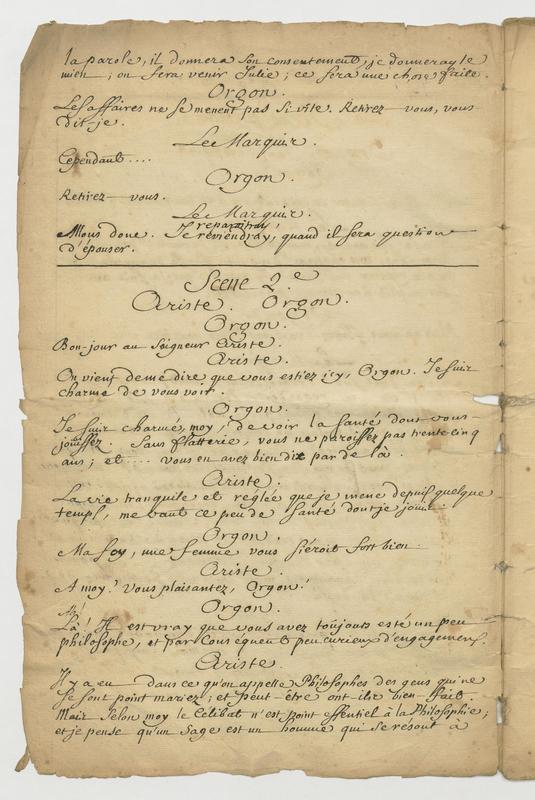 la parole, il donnera son consentement, je donneray le
mien ; on fera venir Julie ; ce sera une chose faite.
Orgon.
Les affaires ne se menent pas si vite. Retirez-vous, vous
dit-je.
Le Marquis.
Cependant....
Orgon.
Retirez-vous.
Le Marquis.
reparaitray,
Allons donc. Je reviendray, quand il sera question
d'épouser.
Scene 2.e
Ariste. Orgon.
Orgon.
Bon-jour au Seigneur Ariste.
Ariste.
On vient de me dire que vous estiez icy, Orgon. Je suis
charmé de vous voir.
Orgon.
Je suis charmé, moy, de voir la santé dont vous
joüissez. Sans flatterie, vous ne paroissez pas trente cinq
ans ; et .... vous en avez bien dix par de là.
Ariste.
La vie tranquile et reglée que je mene depuis quelque
temps, me vaut ce peu de santé dont je joüis.
Orgon.
Ma foy, une femme vous siéroit fort bien.
Ariste.
A moy ! Vous plaisantez, Orgon !
Orgon.
Là ! Il est vray que vous avez toujours esté un peu
philosophe, et par consequent peu curieux d'engagemens.
Ariste.
Il y a eu dans ce qu'on appelle Philosophes des gens qui ne
se sont point mariez ; et peut-être ont-ils bien fait.
Mais selon moy le Célibat n'est point essentiel à la Philosophie ;
et je pense qu'un sage est un homme qui se résout à